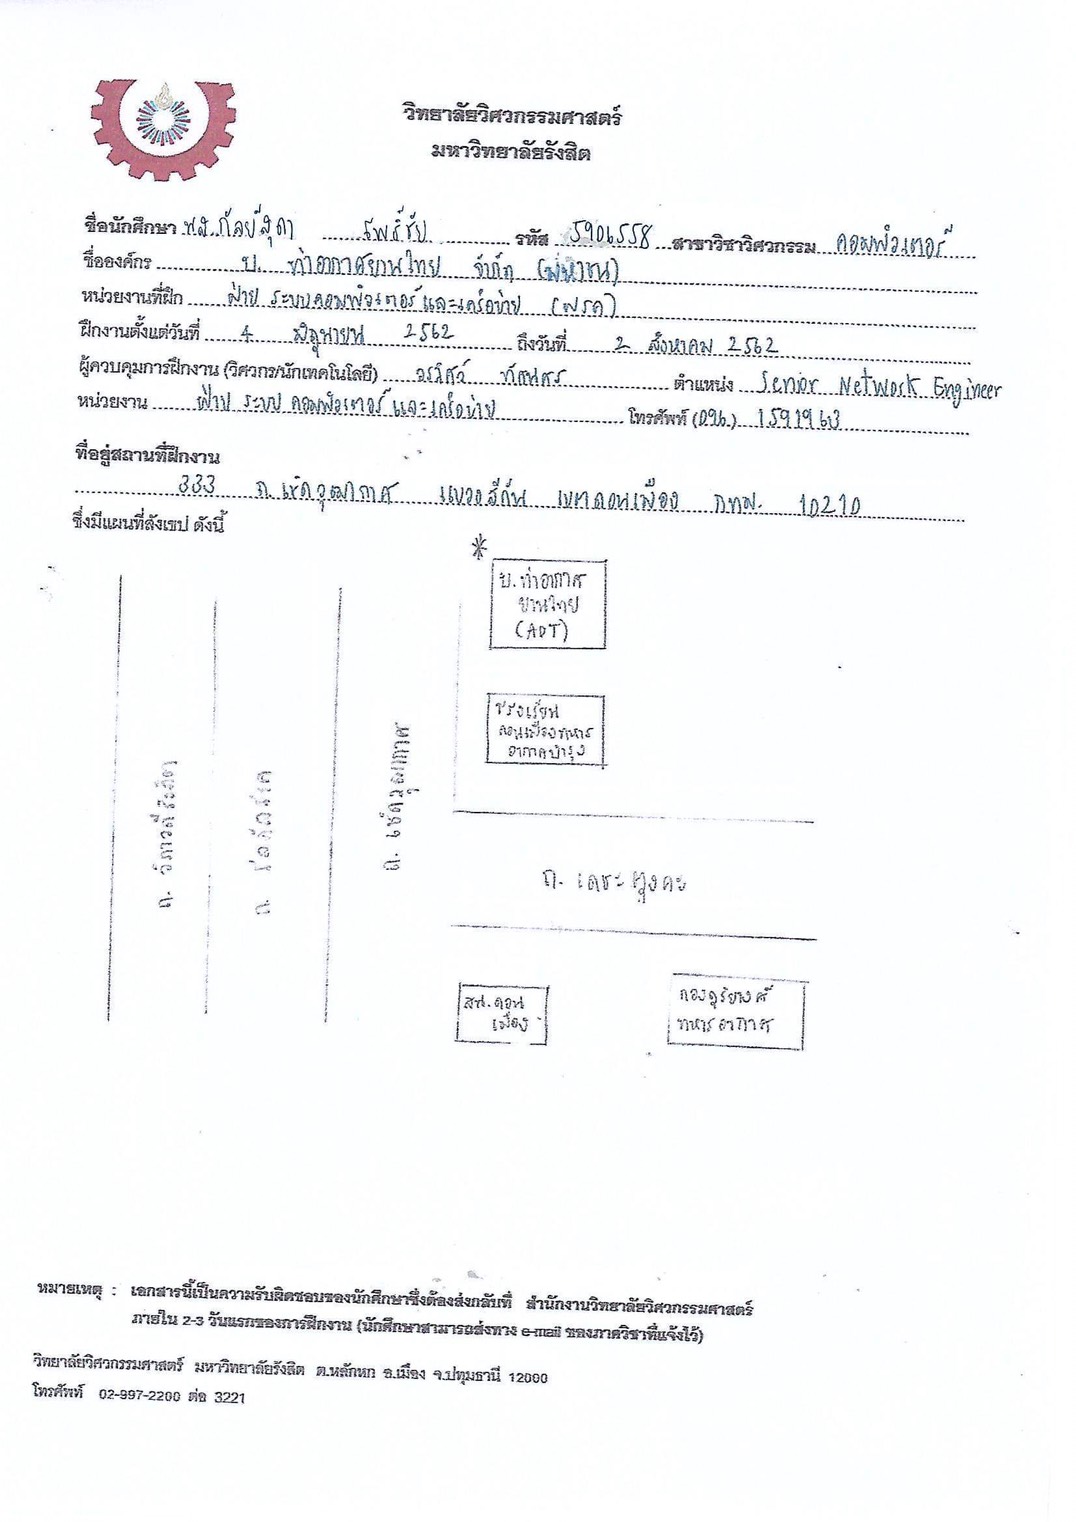 วิทยาลัยวิศวกรรมศาสตร์
มหาวิทยาลัยรังสิต
ชื่อนักศึกษา นส.กัลย์สุดา โพธิ์ชัย รหัส 5906558 สาขาวิชาวิศวกรรม คอมพิวเตอร์
ชื่อองค์กร บ. ท่าอากาศยานไทย จำกัด (มหาชน)
หน่วยงานที่ฝึก ฝ่าย ระบบคอมพิวเตอร์และเครือข่าย (ฝรค)
ฝึกงานตั้งแต่วันที่ 4 มิถุนายน 2562 ถึงวันที่ 2 สิงหาคม 2562
ผู้ควบคุมการฝึกงาน (วิศวกร/นักเทคโนโลยี) วรวิศว์ ทัศนศร ตำแหน่ง Senior Network Engineer
หน่วยงาน ฝ่าย ระบบ คอมพิวเตอร์ และเครือข่าย โทรศัพท์ (096) 1591963
ที่อยู่สถานที่ฝึกงาน
333 ถ.เชิดวุฒากาศ แขวงสีกัน เขตดอนเมือง กทม. 10210
ซึ่งมีแผนที่สังเขป ดังนี้
*
บ.ท่าอากาศ
ยานไทย
(AOT)
โรงเรียน
ดอนเมืองทหาร
อากาศบำรุง
ถ. วิภาวดีรังสิต
ถ. โลคัลโรด
ถ. เชิดวุฒากาศ
ถ. เดชะตุงคะ
สน.ดอน
เมือง
กองดุริยางค์
ทหารอากาศ
หมายเหตุ : เอกสารนี้เป็นความรับผิดชอบของนักศึกษาซึ่งต้องส่งกลับที่ สำนักงานวิทยาลัยวิศวกรรมศาสตร์
ภายใน 2-3 วันแรกของการฝึกงาน (นักศึกษาสามารถส่งทาง e-mail ของภาควิชาที่แจ้งไว้)
วิทยาลัยวิศวกรรมศาสตร์ มหาวิทยาลัยรังสิต ต.หลักหก อ.เมือง จ.ปทุมธานี 12000
โทรศัพท์ 02-997-2200 ต่อ 3221